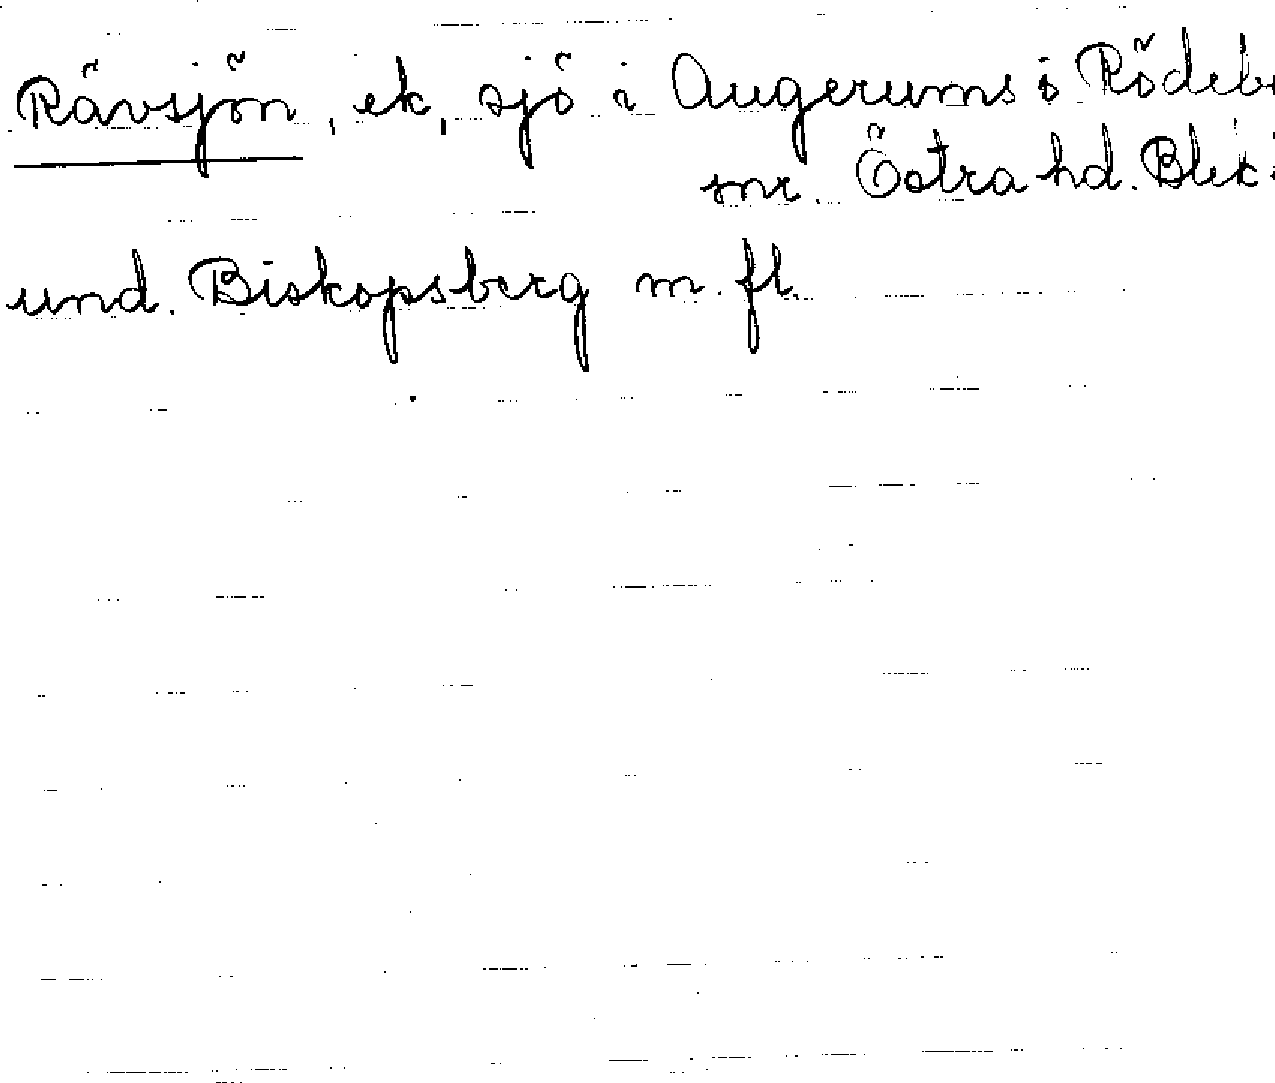 Rävsjön, ek, sjö i Augerums o Rödeb
mr. Östra hd. Blek
und. Biskopsberg m. fl.